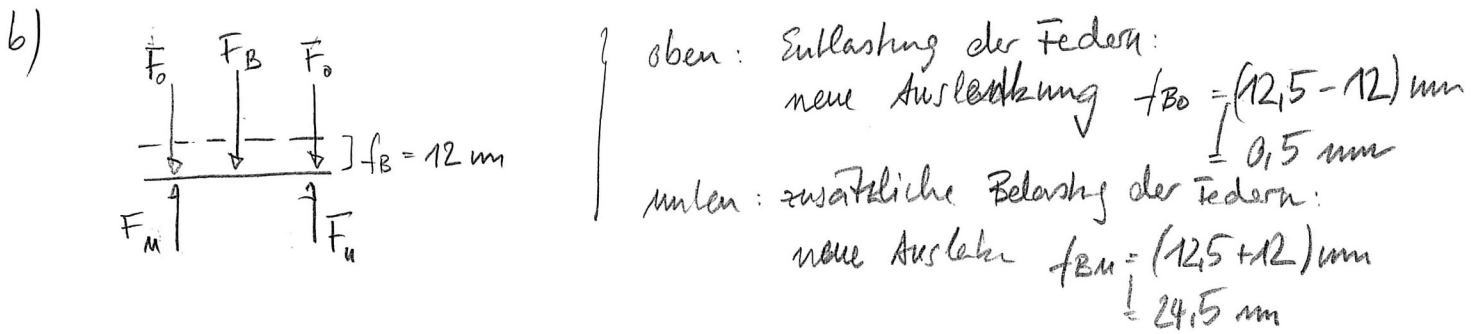 b)
F₀ F_B F₀
] f_B = 12 mm
F_u F_u
oben: Entlastung der Federn:
neue Auslenkung f_BO = (12,5 - 12) mm
= 0,5 mm
unten: zusätzliche Belastg der Federn:
neue Auslenk f_Bu = (12,5 + 12) mm
= 24,5 mm